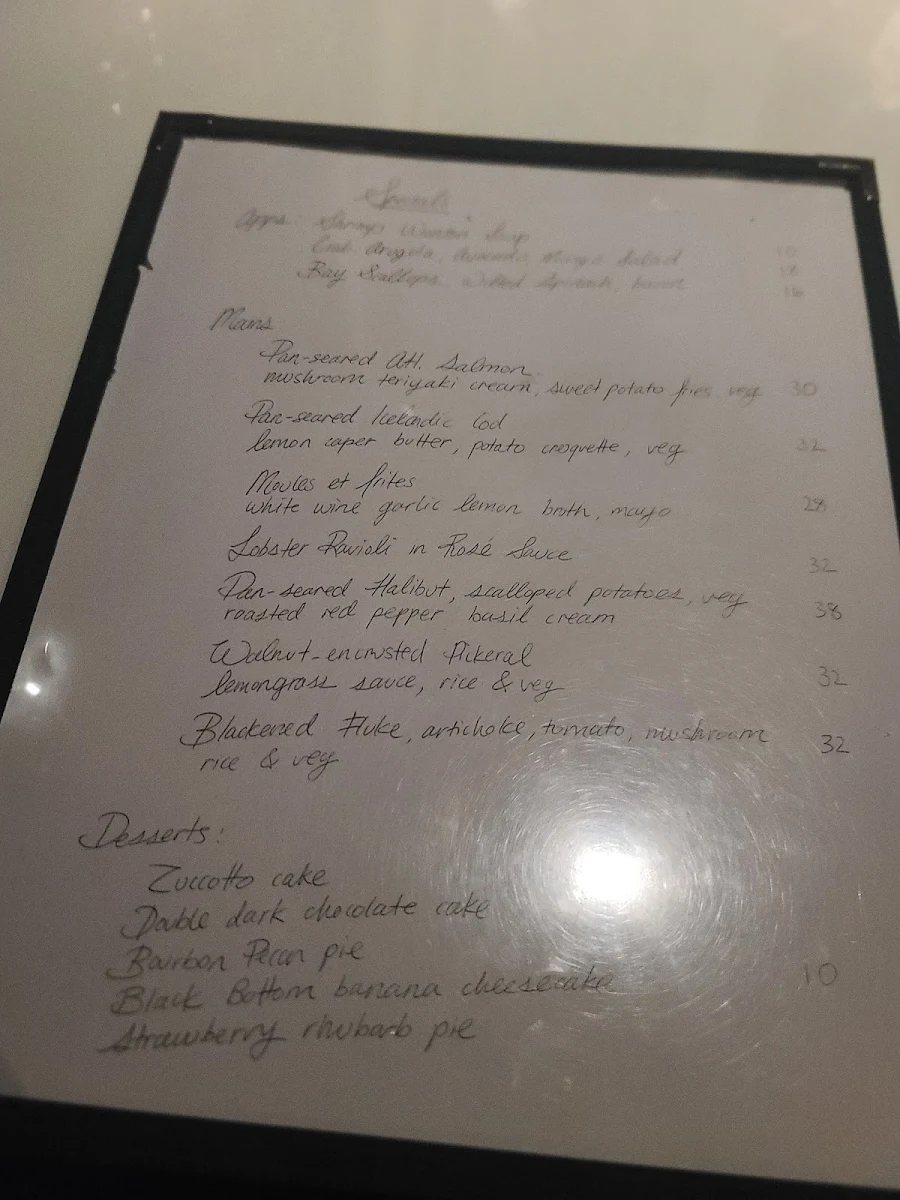 Specials
Apps: Shrimp Wonton Soup 10
Crab, Arugula, Avocado, Mango Salad 18
Bay Scallops, Wilted Spinach, bacon 16
Mains
Pan-seared Atl. Salmon
mushroom teriyaki cream, sweet potato fries, veg 30
Pan-seared Icelandic Cod
lemon caper butter, potato croquette, veg 32
Moules et frites
white wine garlic lemon broth, mayo 28
Lobster Ravioli in Rosé Sauce 32
Pan-seared Halibut, scalloped potatoes, veg
roasted red pepper basil cream 38
Walnut-encrusted Pickeral
lemongrass sauce, rice & veg 32
Blackened Fluke, artichoke, tomato, mushroom 32
rice & veg
Desserts:
Zuccotto cake
Double dark chocolate cake
Bourbon Pecan pie
Black Bottom banana cheesecake 10
Strawberry rhubarb pie